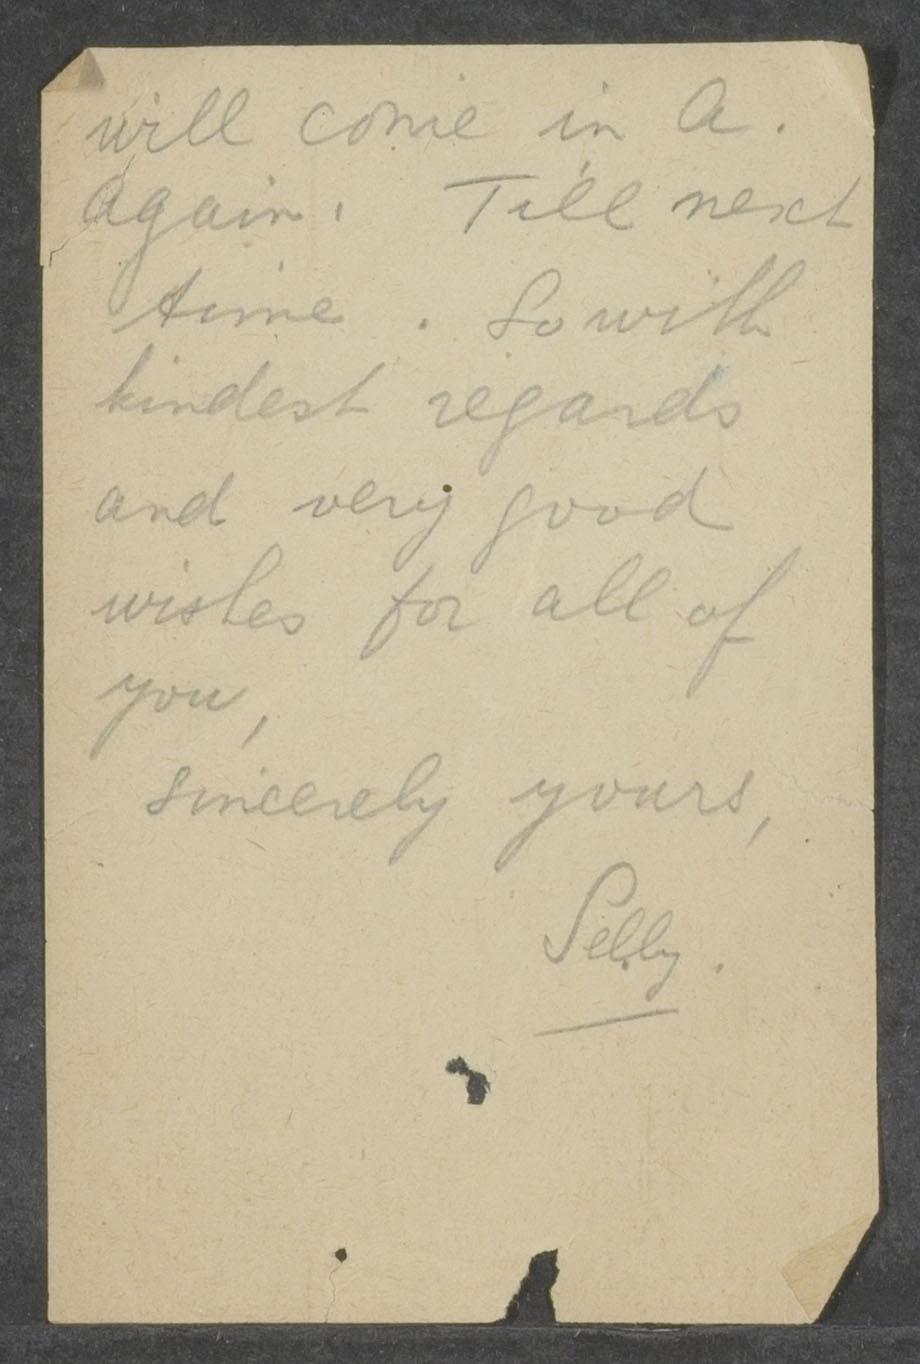 will come in A.
Again. Till next
time. So with
kindest regards
and very good
wishes for all of
you,
sincerely yours,
Selly.